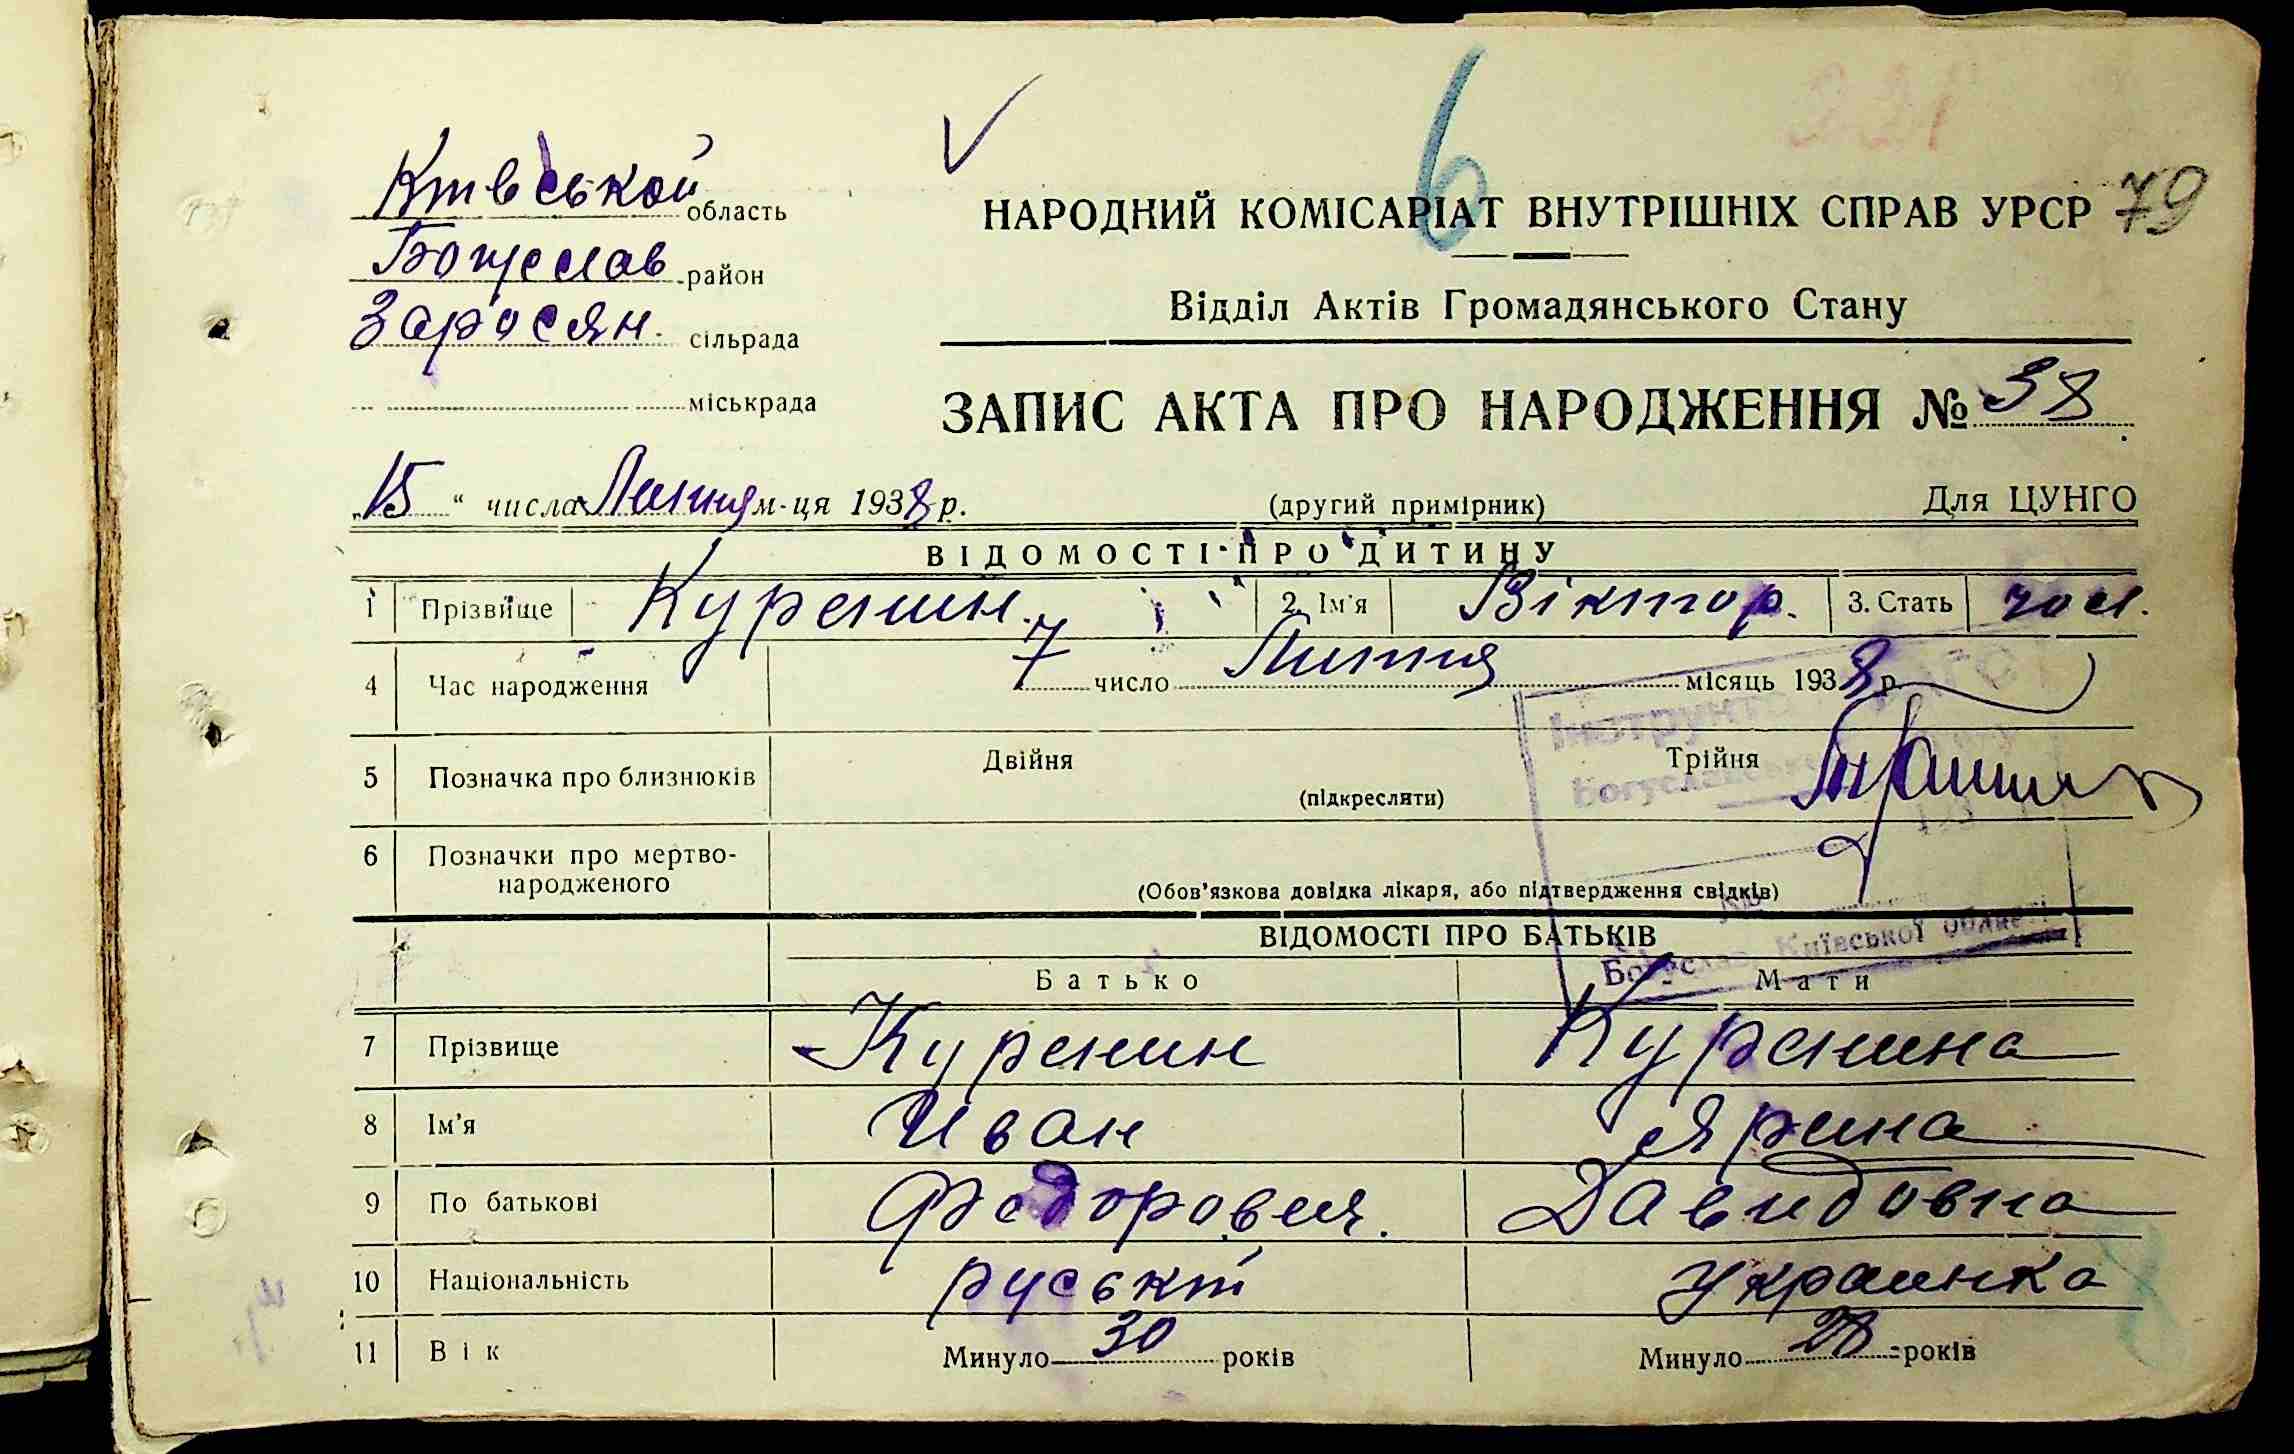 6
Київськой область
Богуслав район
Заросян. сільрада
міськрада
НАРОДНИЙ КОМІСАРІАТ ВНУТРІШНІХ СПРАВ УРСР 79
Відділ Актів Громадянського Стану
ЗАПИС АКТА ПРО НАРОДЖЕННЯ № 38
„15“ числа Липня м-ця 1938 р. (другий примірник) Для ЦУНГО
ВІДОМОСТІ ПРО ДИТИНУ
1 Прізвище Куренин. 2. Ім'я Віктор. 3. Стать чол.
4 Час народження 7 число Липня місяць 1938 р.
5 Позначка про близнюків Двійня (підкреслити) Трійня
6 Позначки про мертво-
народженого (Обов'язкова довідка лікаря, або підтвердження свідків)
ВІДОМОСТІ ПРО БАТЬКІВ
Київської області
Батько Мати
7 Прізвище Куренин Куренина
8 Ім'я Иван Ярина
9 По батькові Федорович. Давидовна
10 Національність руський украинка
11 Вік Минуло 30 років Минуло 28 років